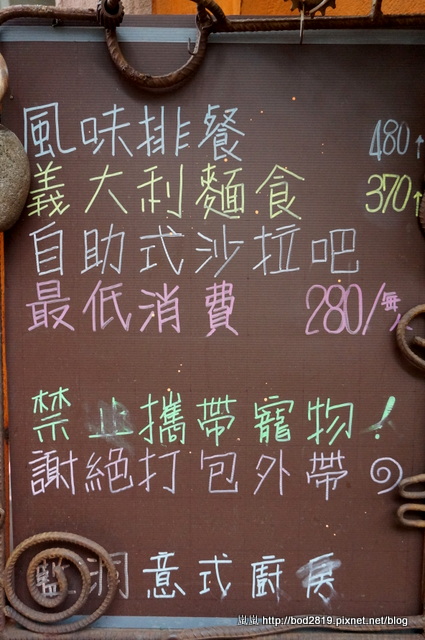 風味排餐 480↑
義大利麵食 370↑
自助式沙拉吧
最低消費 280/每人
禁止攜帶寵物!
謝絕打包外帶
藍洞意式廚房
嵐嵐 http://bod2819.pixnet.net/blog